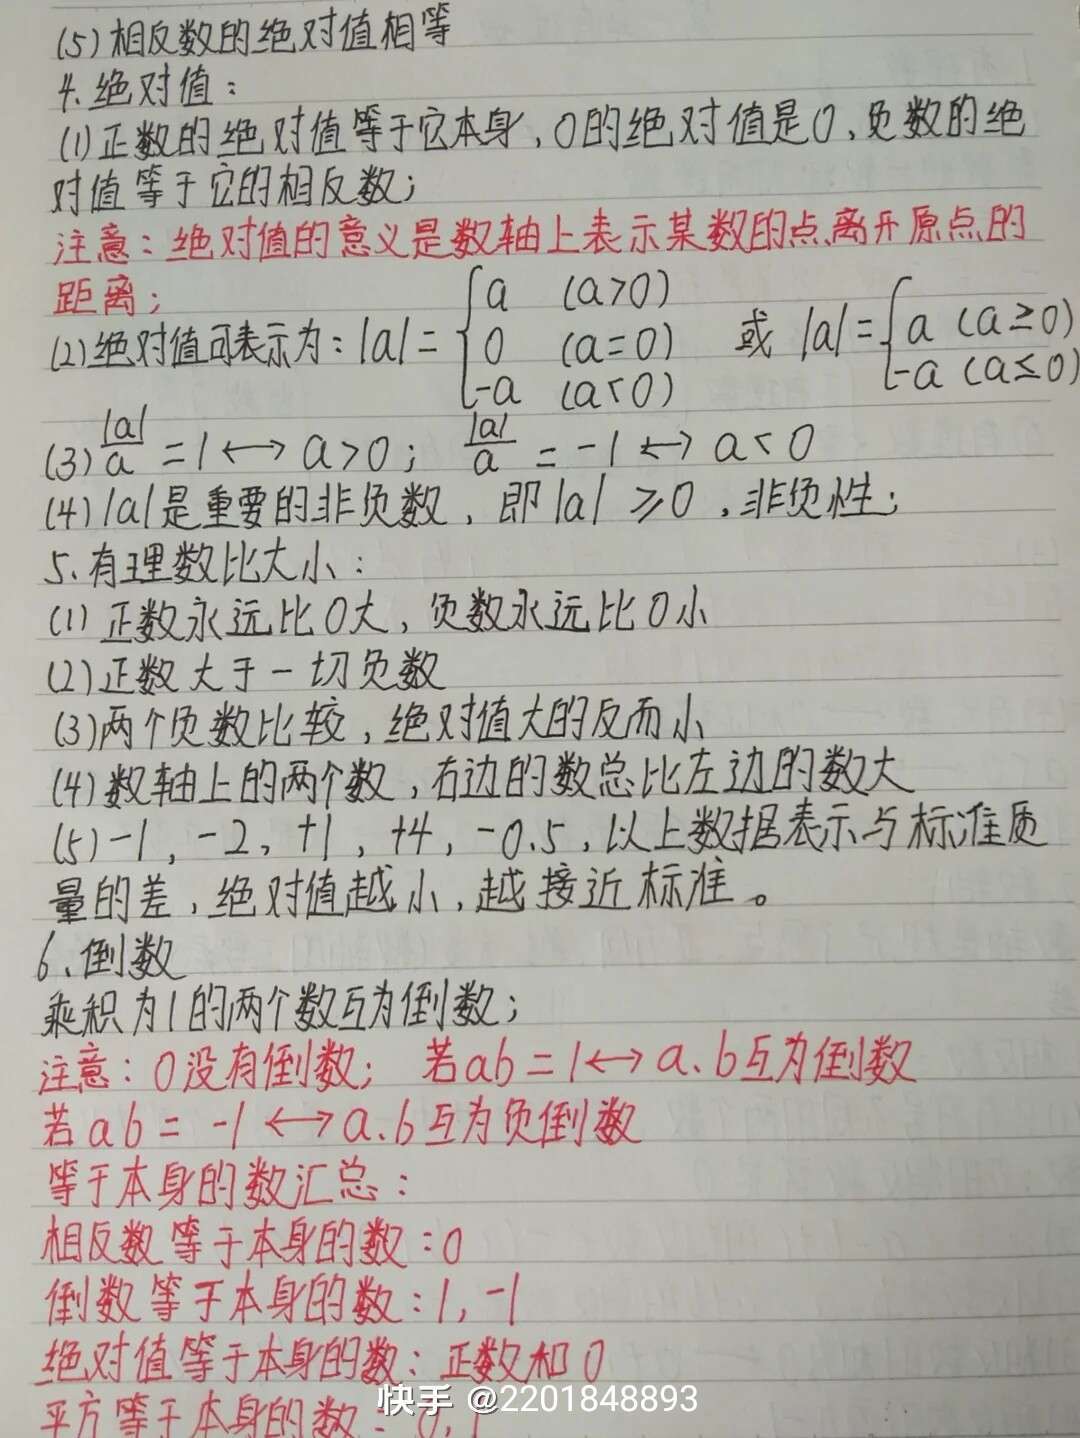 (5)相反数的绝对值相等
4.绝对值：
(1)正数的绝对值等于它本身,0的绝对值是0、负数的绝
对值等于它的相反数;
注意：绝对值的意义是数轴上表示某数的点离开原点的
距离;
(2)绝对值可表示为：|a|={a (a>0) 0 (a=0) -a (a<0) 或 |a|={a (a≥0) -a (a≤0)
(3)|a|/a=1⟷a>0; |a|/a=-1⟷a<0
(4)|a|是重要的非负数,即|a|≥0,非负性;
5、有理数比大小：
(1)正数永远比0大,负数永远比0小
(2)正数大于一切负数
(3)两个负数比较,绝对值大的反而小
(4)数轴上的两个数,右边的数总比左边的数大
(5)-1,-2,+1,+4,-0.5,以上数据表示与标准质
量的差,绝对值越小,越接近标准。
6、倒数
乘积为1的两个数互为倒数;
注意：0没有倒数; 若ab=1⟷a.b互为倒数
若ab=-1⟷a.b互为负倒数
等于本身的数汇总：
相反数等于本身的数：0
倒数等于本身的数：1,-1
绝对值等于本身的数：正数和0
平方等于本身的数：0,1
快手 @2201848893